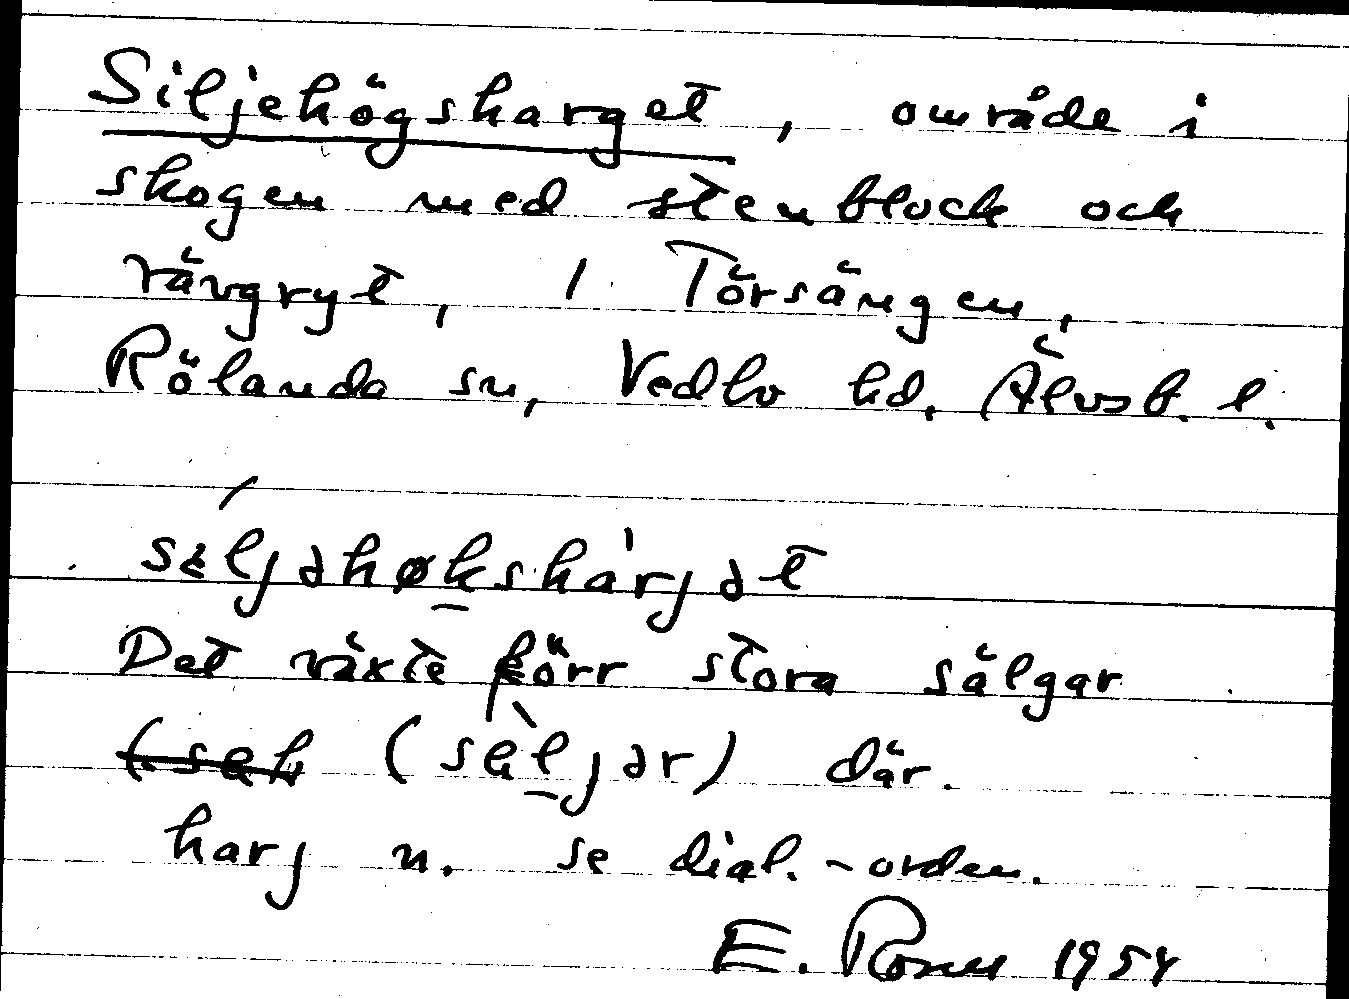 Siljehögsharget, område i
skogen med stenblock och
rävgryt, i Torsängen,
Rölanda sn, Vedbo hd. Älvsb. l.
sɛljəhøk̲shàrjət
Det växte förr stora sälgar
(sɛl̲jər) där.
harj n. se dial.-orden.
E. Rosell 1954